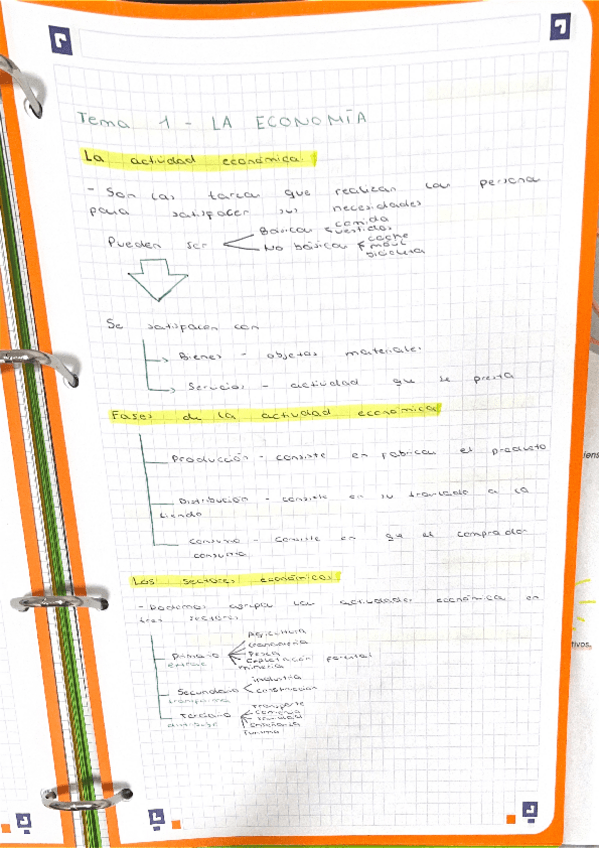 Tema 1 - LA ECONOMÍA
La actividad económica:
- Son las tareas que realizan las personas
para satisfacer sus necesidades
Pueden ser
Básicas
comida
vestidos
No básicas
coche
móvil
bicicleta
Se satisfacen con
Bienes - objetos materiales
Servicios - actividad que se presta
Fases de la actividad económica
Producción - consiste en fabricar el producto
Distribución - consiste en su traslado a la
tienda
Consumo - consiste en que el comprador
consuma
Los sectores económicos
- Podemos agrupar las actividades económica en
tres sectores
Primario
extrae
Agricultura
Ganadería
Pesca
Explotación forestal
Minería
Secundario
transforma
industria
construcción
Terciario
Transporte
Comercio
Sanidad
Enseñanza
Turismo
iens
tivos.